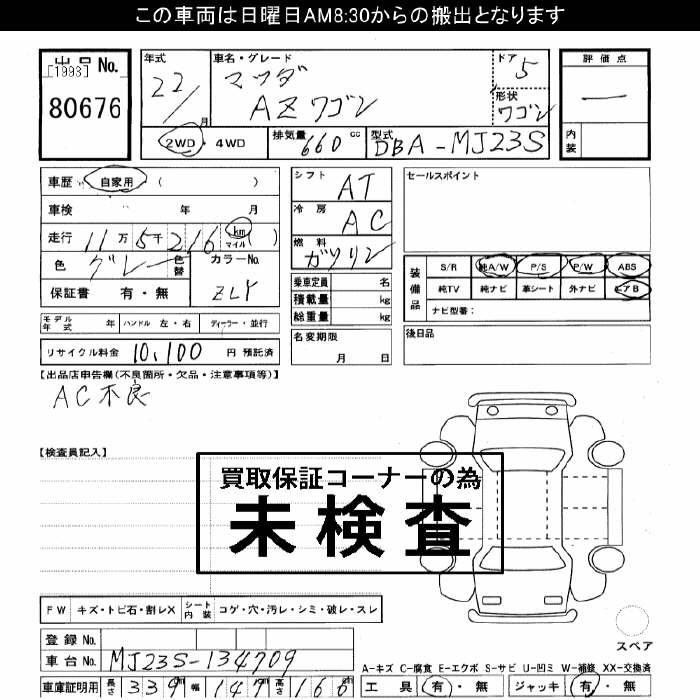 この車両は日曜日AM8:30からの搬出となります
出品No.
[1993]
80676
年式
22/
月
車名・グレード
マツダ
AZワゴン
ドア
5
形状
ワゴン
評価点
―
内装
2WD・4WD
排気量 660 cc
型式 DBA-MJ23S
車歴 自家用 ( )
車検 年 月
走行 11万5千216 km マイル ( )
色 グレー 色替
カラーNo.
ZLY
保証書 有・無
シフト AT
冷房 AC
燃料 ガソリン
乗車定員 名
積載量 kg
総重量 kg
セールスポイント
装備品
S/R 純A/W P/S P/W ABS
純TV 純ナビ 革シート 外ナビ エアB
ナビ型番:
モデル年式 年 ハンドル 左・右 ディーラー・並行
名変期限
月 日
後日品
リサイクル料金 10,100 円 預託済
【出品店申告欄(不良箇所・欠品・注意事項等)】
AC不良
【検査員記入】
買取保証コーナーの為
未検査
FW キズ・トビ石・割レX シート内装 コゲ・穴・汚レ・シミ・破レ・スレ
登録No.
車台No. MJ23S-134709
車庫証明用 長さ 339 幅 147 高さ 166
スペア
A-キズ C-腐食 E-エクボ S-サビ U-凹ミ W-補修 XX-交換済
工具 有・無 ジャッキ 有・無